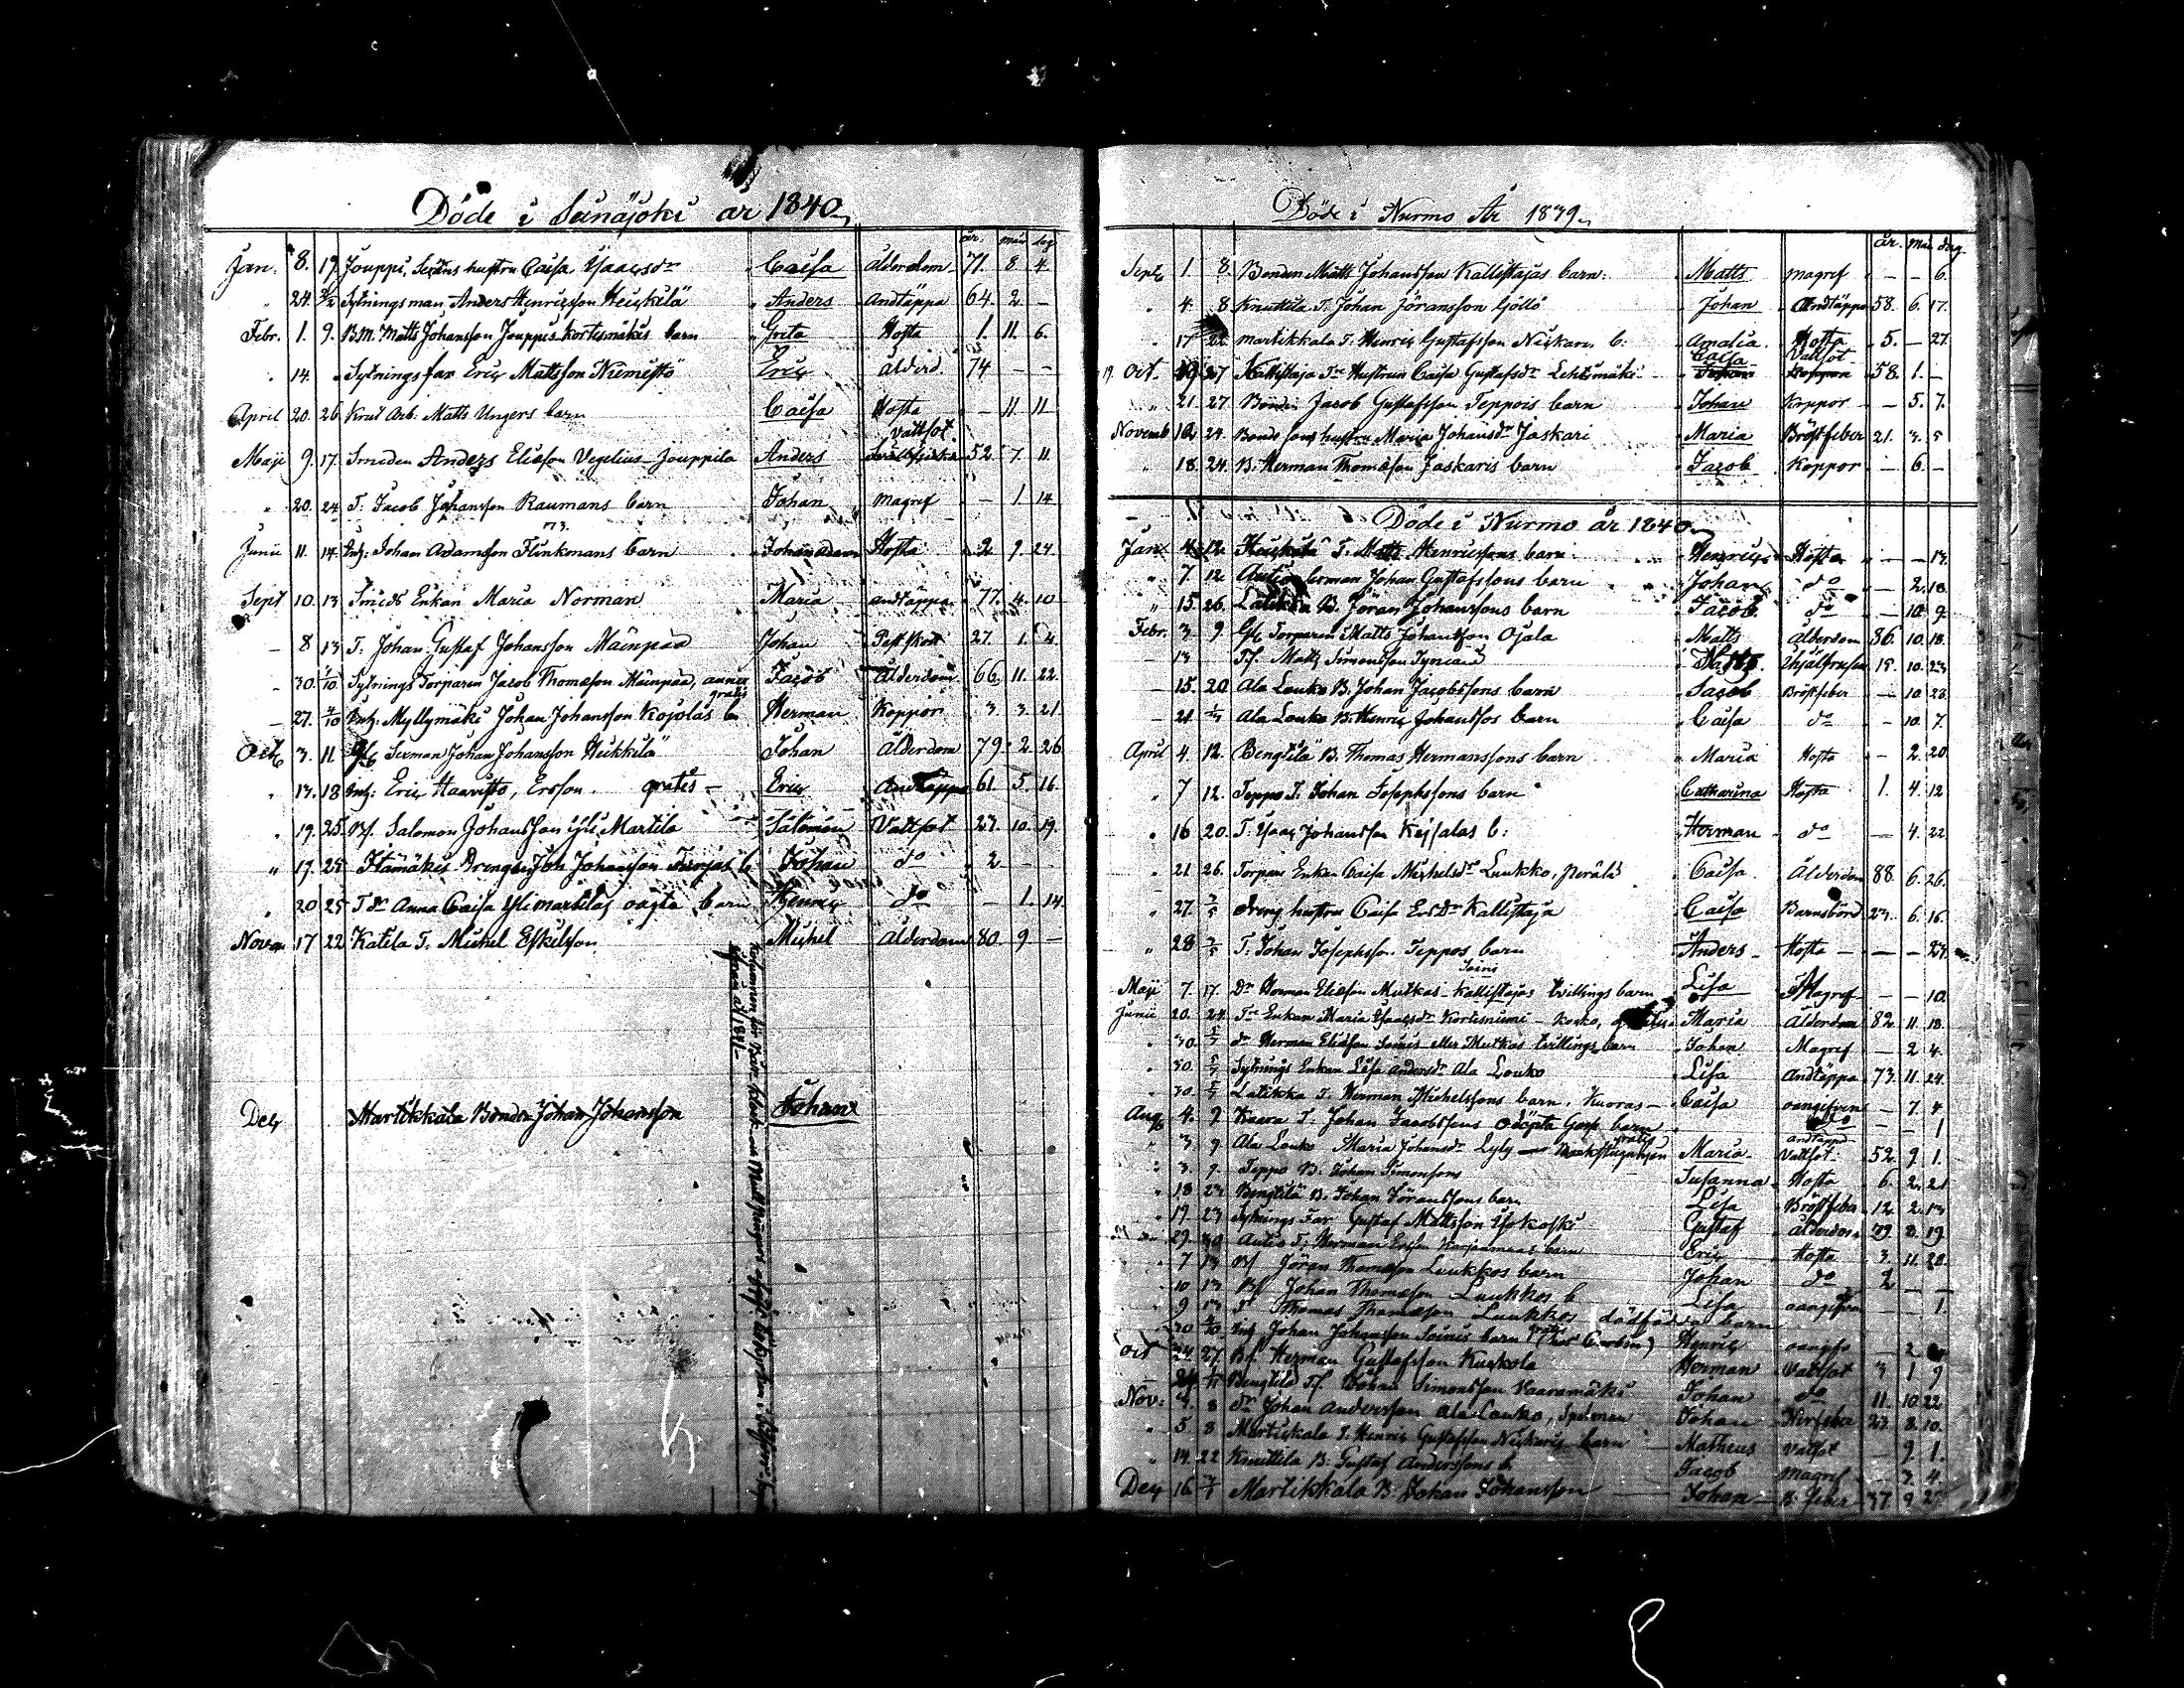 Döde i Seinäjoki år 1840
år. mån dag
Jan. 8. 19. Jouppi, Sexmans hustru Caisa Isaacsdr Caisa Ålderdom 71. 8 4
" 24. 2/2 Sytningsman Anders Henricsson Heickilä Anders Andtäppa 64. 2 —
Febr. 1. 9. B.M. Matts Johansson Jouppis Kortesmäkis barn Greta Hosta 1. 11. 6.
" 14. Sytningsfar Eric Mattsson Niemistö Eric Ålderd. 74 — —
April 20. 26 Krut Arb. Matts Ungers barn Caisa Hosta 11. 11
Maji 9. 17. Smeden Anders Eliasson Vegelius Jouppila Anders Vattsot 52 7. 11
" 20. 24 T. Jacob Johansson Raumans barn Johan Magref — 1 14
Junii 11. 14 Inh: Johan Adamsson Flinkmans barn Johan Adam Hosta 2 9. 24
Sept 10. 13 Smeds Enkan Maria Norman Maria andtäppa 77. 4. 10
— 8 13 T. Johan Gustaf Johansson Mäenpää Johan 27. 1. 4
— 30. 1/10 Sytnings Torparen Jacob Thomasson Mäenpää, gratis Jacob Ålderdom 66. 11. 22.
— 27. 4/10 Inh: Myllymäki Johan Johansson Kojolas b. Herman Koppor 3 3. 21
Octb 3. 11 Gl. Sexman Johan Johansson Heikkilä Johan Ålderdom 79. 2. 26
" 13. 18 Inh: Eric Haavisto, Ersson. gratis — Eric Andtäppa 61. 5. 16
" 19. 25. Bs. Salomon Johansson Yli Martila Salomon Vattsot 27. 10. 19.
" 17. 25 Itämäkis Drengen Joh Johansson b Johan do 2 — —
" 20 25 T dr Anna Caisa Ylimartilas oägta barn Henric do — 1. 14
Novem 17 22 Katila T. Michel Eskelsson Michel Ålderdom 80. 9 —
Dec Martikkala Bonden Johan Johansson Johan
Döde i Nurmo År 1839
år. mån dag
Septb 1. 8. Bonden Matts Johansson Kallistajas barn. Matts magref — — 6.
" 4. 8 Knuttila T. Johan Jöransson Göllö Johan Andtäppa 58. 6. 17.
" 17 22 Martikkala T. Henric Gustafsson Niskaris b: Amalia Hosta 5. — 27
Oct. 27 Kallistaja Hustrun Caisa Gustafsdr Lehtimäki Caisa Vattsot 58. 1. —
" 21 27 Bonden Jacob Gustafsson Teppois barn Johan Koppor — 5. 7.
Novemb 12. 24. Bondsons hustru Maria Johansdr Jaskari Maria Bröstfeber 21. 3. 5
" 18. 24. B. Herman Thomasson Jaskaris barn Jacob Koppor — 6. —
Döde i Nurmo år 1840
Jan. 4. 12. Heickilä T. Matts Henricssons barn. Henric Hosta — — 17.
" 7. 12 Autio Johan Gustafssons barn Johan do — 2. 18
" 15. 26. Latikka B. Jöran Johanssons barn Jacob do — 10. 9.
Febr. 3. 9. Gl. Torparen Matts Johansson Ojala Matts Ålderdom 86. 10. 18.
— 13 Matts Simonsson Matts 18. 10. 23
— 15. 20 Ala Louko B. Johan Jacobssons barn Jacob Bröstfeber — 10 28
— 21 Ala Louko B. Henric Johanssos barn Caisa do — 10. 7.
April 4 12. Bengtilä B. Thomas Hermanssons barn Maria Hosta — 2. 20
" 7 12. Teppo T. Johan Josephssons barn Catharina Hosta 1. 4. 12
" 16 20. T. Isaac Johansson Keisalas b: Herman do — 4. 22
" 21 26. Torpare Enkan Caisa Michelsdr Luukko, Perälä Caisa. Ålderdom 88. 6. 26.
" 27. 3/5 Dreng hustru Caisa Ersdr Kallistaja Caisa Barnsbörd 23. 6. 16
" 28 3/5 T. Johan Josephsson Teppos barn Anders Hosta — — 27.
Maji 7. 17. Dr Herman Eliasson Mutkas Soini Kallistajas tvillings barn Lisa Magref — — 10
Junii 20. 24 Enkan Maria Isaacsdr Kortesniemi — Kosko, gratis Maria Ålderdom 82 11. 18.
" 30. 5/7 dr Herman Eliasson Soinis eller Mutkas tvillings barn Johan Magref — 2 4.
" 30. 5/7 Sytnings Enkan Lisa Andersdr Ala Louko Lisa Andtäppa 73. 11. 24.
" 30. 5/7 Latikka T. Herman Michelssons barn, Kuoras — Caisa oangifven — 7. 4
Aug 4. 9 Kaera T. Johan Jacobssons odöpta Goss barn do — — 1
" 3. 9 Ala Louko Maria Johansdr Lyly gratis Maria Vattsot 52. 9 1.
" 3. 9. Teppo B. Johan Simonssons Susanna Hosta 6. 2. 21
" 18 23 Bengtilä B. Johan Jöranssons barn Lisa Bröstfeber 12. 2. 13
" 19. 23 Sytnings Far Gustaf Mattsson Isokoski Gustaf Ålderdom 79. 8. 19.
29. 30 Autio T. Herman Ersson barn Eric Hosta 3. 11. 20.
7 13 Bs Jöran Thomasson Luukkos barn Johan do 2 — —
10 13 Bs Johan Thomasson Luukkos b Lisa oangifven — — 1.
9 13 T Thomas Thomasson Luukkos dödfödda barn
30 4/10 Inh Johan Johansson Soinis barn Henric oangifv — 2
Oct 24. 27. Bs. Herman Gustafsson Kuckola Herman Vattsot 3 1 9
Bengtilä Johan Simonsson Vaaramäki Johan do 11. 10. 22
Nov: 4. 8 dr Johan Andersson Ala Louko, Spelman Johan Nerffeber 23. 8. 10.
" 5. 8 Martikala T. Henric Gustafsson Niskaris barn Matheus Vatsot — 9. 1.
" 14. 22 Knuttila B. Gustaf Anderssons b. Jacob Magref — 3. 4.
Dec 16 Martikkala B. Johan Johansson Johan B. feber 37. 9 25